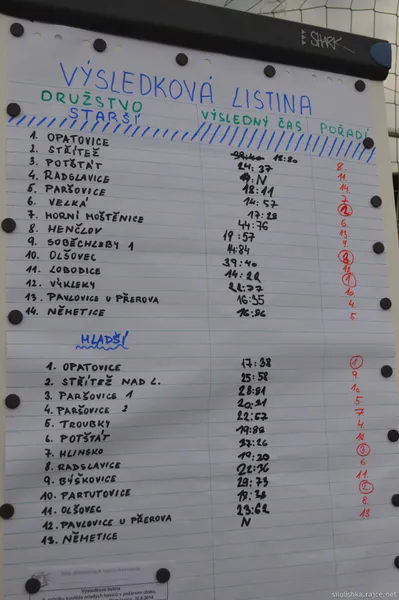 SHARK
VÝSLEDKOVÁ LISTINA
DRUŽSTVO VÝSLEDNÝ ČAS POŘADÍ
STARŠÍ
1. OPATOVICE 18:80 8.
2. STŘÍTEŽ 24:37 11.
3. POTŠTÁT N 14.
4. RADSLAVICE 18:11 7.
5. PARŠOVICE 14:57 2
6. VELKÁ 17:28 6.
7. HORNÍ MOŠTĚNICE 44:76 13.
8. HENČLOV 19:57 9.
9. SOBĚCHLEBY 1 14:84 3
10. OLŠOVEC 39:40 12.
11. LOBODICE 14:22 1
12. VÝKLEKY 22:77 10.
13. PAVLOVICE U PŘEROVA 16:35 4.
14. NĚMETICE 16:86 5.
MLADŠÍ
1. OPATOVICE 17:38 1
2. STŘÍTEŽ NAD L. 25:58 9.
3. PARŠOVICE 1 28:81 10.
4. PARŠOVICE 2 20:21 5
5. TROUBKY 22:57 7
6. POTŠTÁT 19:88 4
7. HLINSKO 37:26 12
8. RADSLAVICE 19:20 3
9. BÝŠKOVICE 22:36 6
10. PARTUTOVICE 29:73 11.
11. OLŠOVEC 18:38 2
12. PAVLOVICE U PŘEROVA 23:62 8
13. NĚMETICE N 13.
Výsledková listina
snulishka.rajce.net